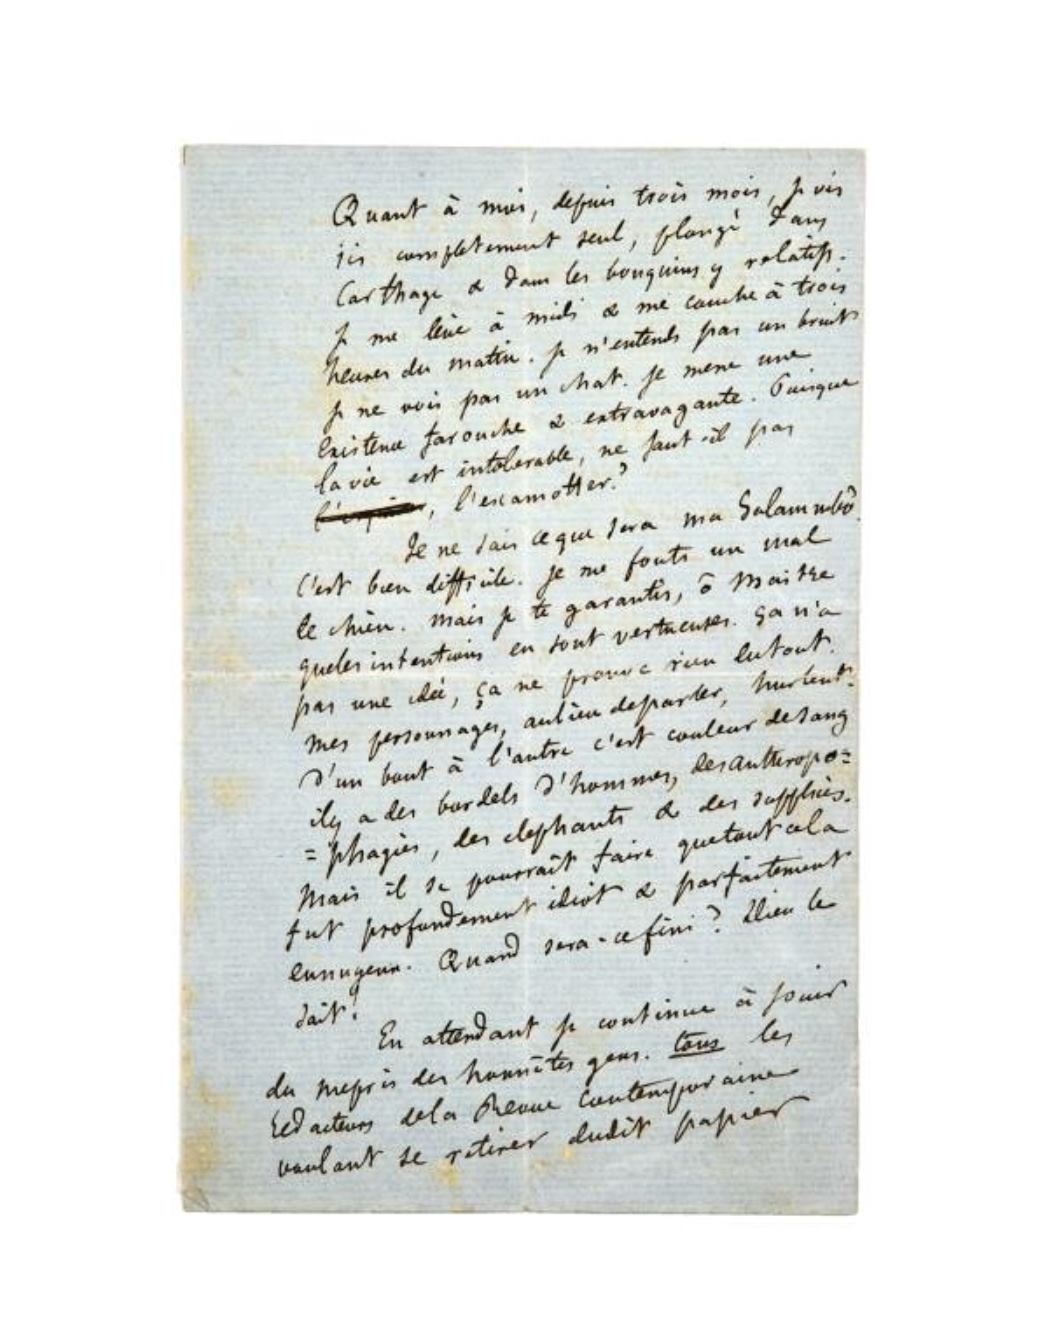 Quant à moi, depuis trois mois, je vis
ici completement seul, plongé dans
Carthage & dans les bouquins y relatifs.
je me lève à midi & me couche à trois
heures du matin. je n'entends pas un bruit
je ne vois pas un chat. je mene une
existence farouche & extravagante. Puisque
la vie est intolerable, ne faut-il pas
, l'escamotter?
Je ne sais ce que sera ma Salammbô.
C'est bien difficile. je me fouts un mal
de chien. Mais je te garantis, ô Maitre
que les intentions en sont vertueuses. ça n'a
pas une idée, ça ne prouve rien du tout.
mes personnages, au lieu de parler, hurlent.
D'un bout à l'autre c'est couleur de sang
il y a des bordels d'hommes, des anthropo=
=phagies, des elephants & des supplices.
Mais il se pourrait faire que tout cela
fut profondement idiot & parfaitement
ennuyeux. Quand sera-ce fini? Dieu le
sait!
En attendant je continue à jouir
du mepris des honnêtes gens. tous les
redacteurs de la Revue Contemporaine
voulant se retirer dudit papier